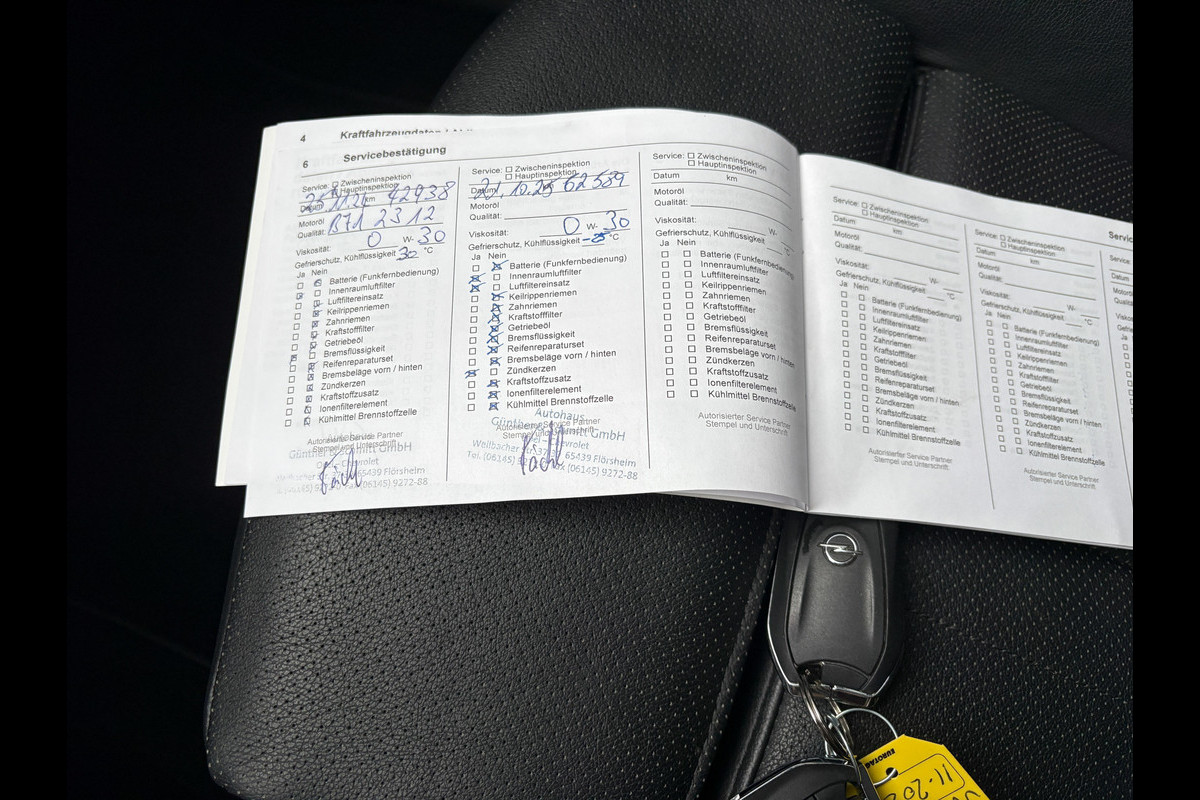 4 Kraftfahrzeugdaten
6 Servicebestätigung
Service: Zwischeninspektion
Hauptinspektion
Datum km
42938
Motoröl
Qualität: B71 2312
Viskosität: 0 W- 30
Gefrierschutz, Kühlflüssigkeit 30 °C
Ja Nein
Batterie (Funkfernbedienung)
Innenraumluftfilter
Luftfiltereinsatz
Keilrippenriemen
Zahnriemen
Kraftstofffilter
Getriebeöl
Bremsflüssigkeit
Reifenreparaturset
Bremsbeläge vorn / hinten
Zündkerzen
Kraftstoffzusatz
Ionenfilterelement
Kühlmittel Brennstoffzelle
Autorisierter Service Partner
Stempel und Unterschrift
Günther Schmitt GmbH
Chevrolet
65439 Flörsheim
(06145) 9272-88
Service: Zwischeninspektion
Hauptinspektion
Datum
21.10.25 62589
Motoröl
Qualität:
Viskosität: 0 W- 30
Gefrierschutz, Kühlflüssigkeit °C
Ja Nein
Batterie (Funkfernbedienung)
Innenraumluftfilter
Luftfiltereinsatz
Keilrippenriemen
Zahnriemen
Kraftstofffilter
Getriebeöl
Bremsflüssigkeit
Reifenreparaturset
Bremsbeläge vorn / hinten
Zündkerzen
Kraftstoffzusatz
Ionenfilterelement
Kühlmittel Brennstoffzelle
Autohaus
Autorisierter Service Partner
Günther Schmitt GmbH
Stempel und Unterschrift
Weilbacher Str. Chevrolet
65439 Flörsheim
Tel. (06145) Fax (06145) 9272-88
Service: Zwischeninspektion
Hauptinspektion
Datum km
Motoröl
Qualität:
Viskosität: W-
Gefrierschutz, Kühlflüssigkeit °C
Ja Nein
Batterie (Funkfernbedienung)
Innenraumluftfilter
Luftfiltereinsatz
Keilrippenriemen
Zahnriemen
Kraftstofffilter
Getriebeöl
Bremsflüssigkeit
Reifenreparaturset
Bremsbeläge vorn / hinten
Zündkerzen
Kraftstoffzusatz
Ionenfilterelement
Kühlmittel Brennstoffzelle
Autorisierter Service Partner
Stempel und Unterschrift
Service: Zwischeninspektion
Hauptinspektion
Datum km
Motoröl
Qualität:
Viskosität: W-
Gefrierschutz, Kühlflüssigkeit °C
Ja Nein
Batterie (Funkfernbedienung)
Innenraumluftfilter
Luftfiltereinsatz
Keilrippenriemen
Zahnriemen
Kraftstofffilter
Getriebeöl
Bremsflüssigkeit
Reifenreparaturset
Bremsbeläge vorn / hinten
Zündkerzen
Kraftstoffzusatz
Ionenfilterelement
Kühlmittel Brennstoffzelle
Autorisierter Service Partner
Stempel und Unterschrift
Service: Zwischeninspektion
Hauptinspektion
Datum km
Motoröl
Qualität:
Viskosität: W-
Gefrierschutz, Kühlflüssigkeit °C
Ja Nein
Batterie (Funkfernbedienung)
Innenraumluftfilter
Luftfiltereinsatz
Keilrippenriemen
Zahnriemen
Kraftstofffilter
Getriebeöl
Bremsflüssigkeit
Reifenreparaturset
Bremsbeläge vorn / hinten
Zündkerzen
Kraftstoffzusatz
Ionenfilterelement
Kühlmittel Brennstoffzelle
Autorisierter Service Partner
Stempel und Unterschrift
Servic
Service:
Datum
Motoröl
Qualität:
EUROTAG